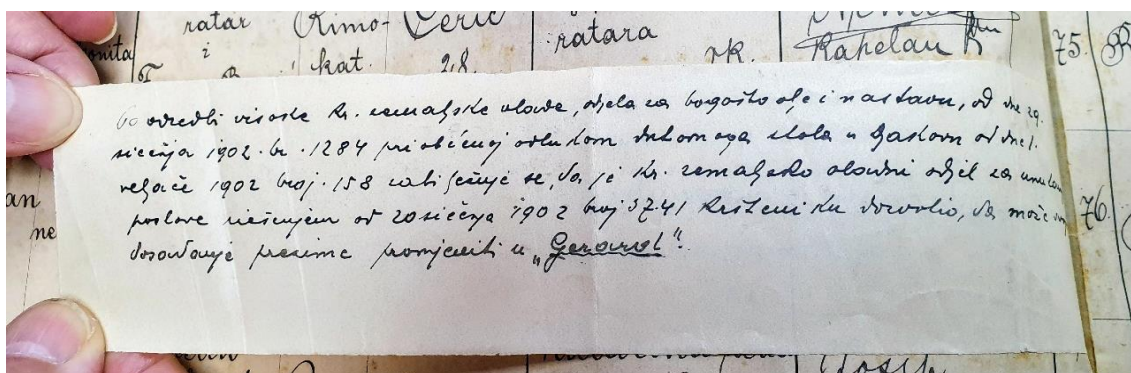 ratar Rimo- Cerić ratara
i kat. 28. rk. Kapelan 75.
Po odredbi visoke kr. zemaljske vlade, odjela za bogoštovlje i nastavu, od dne 29.
siečnja 1902. br. 1284 priobćenoj odlukom duhovnoga stola u Djakovu od dne 1.
veljače 1902 broj 158 zabilježuje se, da je kr. zemaljske vladni odjel za
poslove riešenjem od 20 siečnja 1902 broj 3741 kršteniku dozvolio, da može
dosadanje prezime promjeniti u „Gerard".
76.
an
ne
Josip